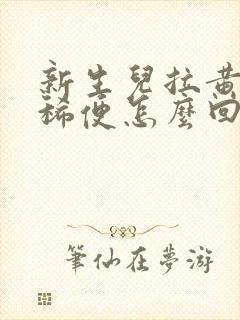 新生兒拉黃
稀便怎麼回
筆仙在夢游